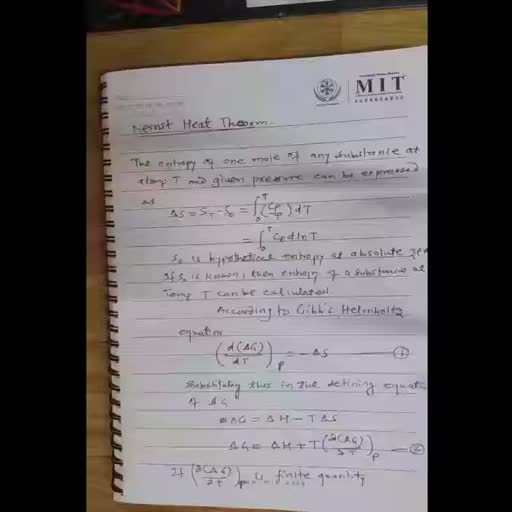 MIT
AURANGABAD
Nernst Heat Theorem.
The entropy of one mole of any substance at
temp T and given pressure can be expressed
as
ΔS = S_T - S_0 = ∫_0^T (Cp/T) dT
= ∫_0^T Cp d ln T
S_0 is hypothetical entropy at absolute zero
If S_0 is known, then entropy of a substance at
Temp T can be calculated.
According to Gibb's Helmholtz
equation
(d(ΔG)/dT)_P = -ΔS — 1
Substituting this in the defining equation
of ΔG
ΔG = ΔH - TΔS
ΔG = ΔH + T(∂(ΔG)/∂T)_P — 2
If (∂(ΔG)/∂T)_P is finite quantity